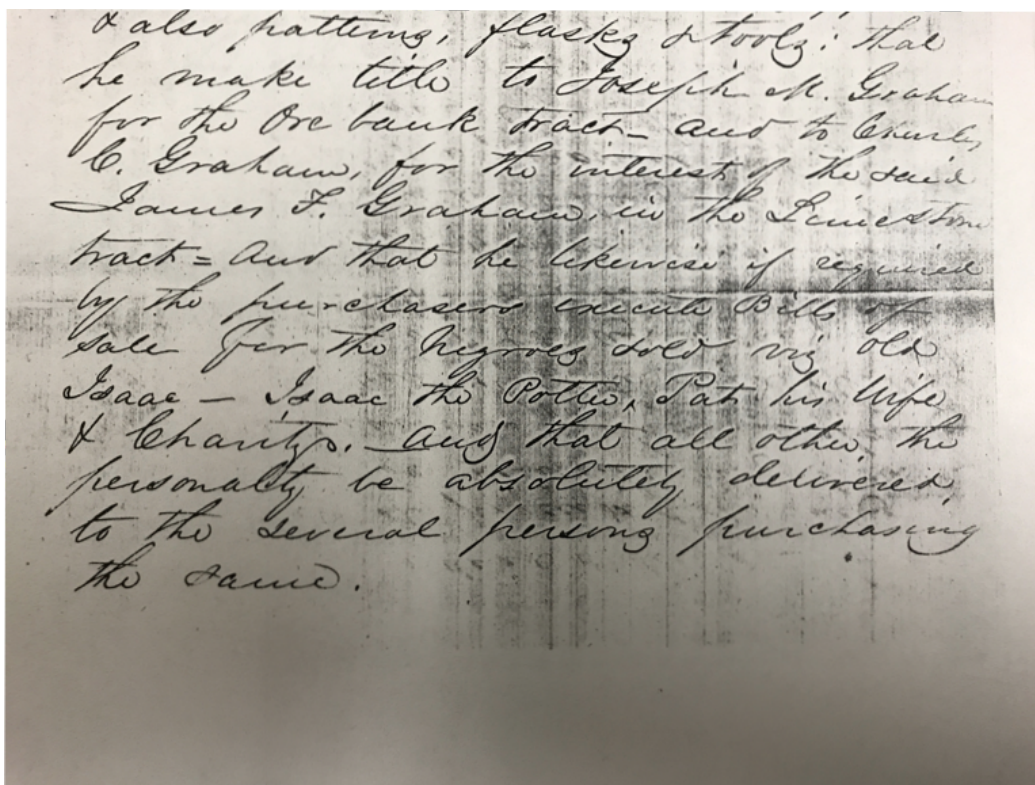 & also patterns, flasks & tools; that
he make title to Joseph M. Graham
for the Ore bank tract — and to Charles
C. Graham, for the interest of the said
James F. Graham, in the Limestone
tract = And that he likewise if required
by the purchasers execute Bills of
Sale for the Negroes sold viz old
Isaac — Isaac the Potter, Pat his Wife
& Charity. — And that all other the
personalty be absolutely delivered,
to the several persons purchasing
the same.